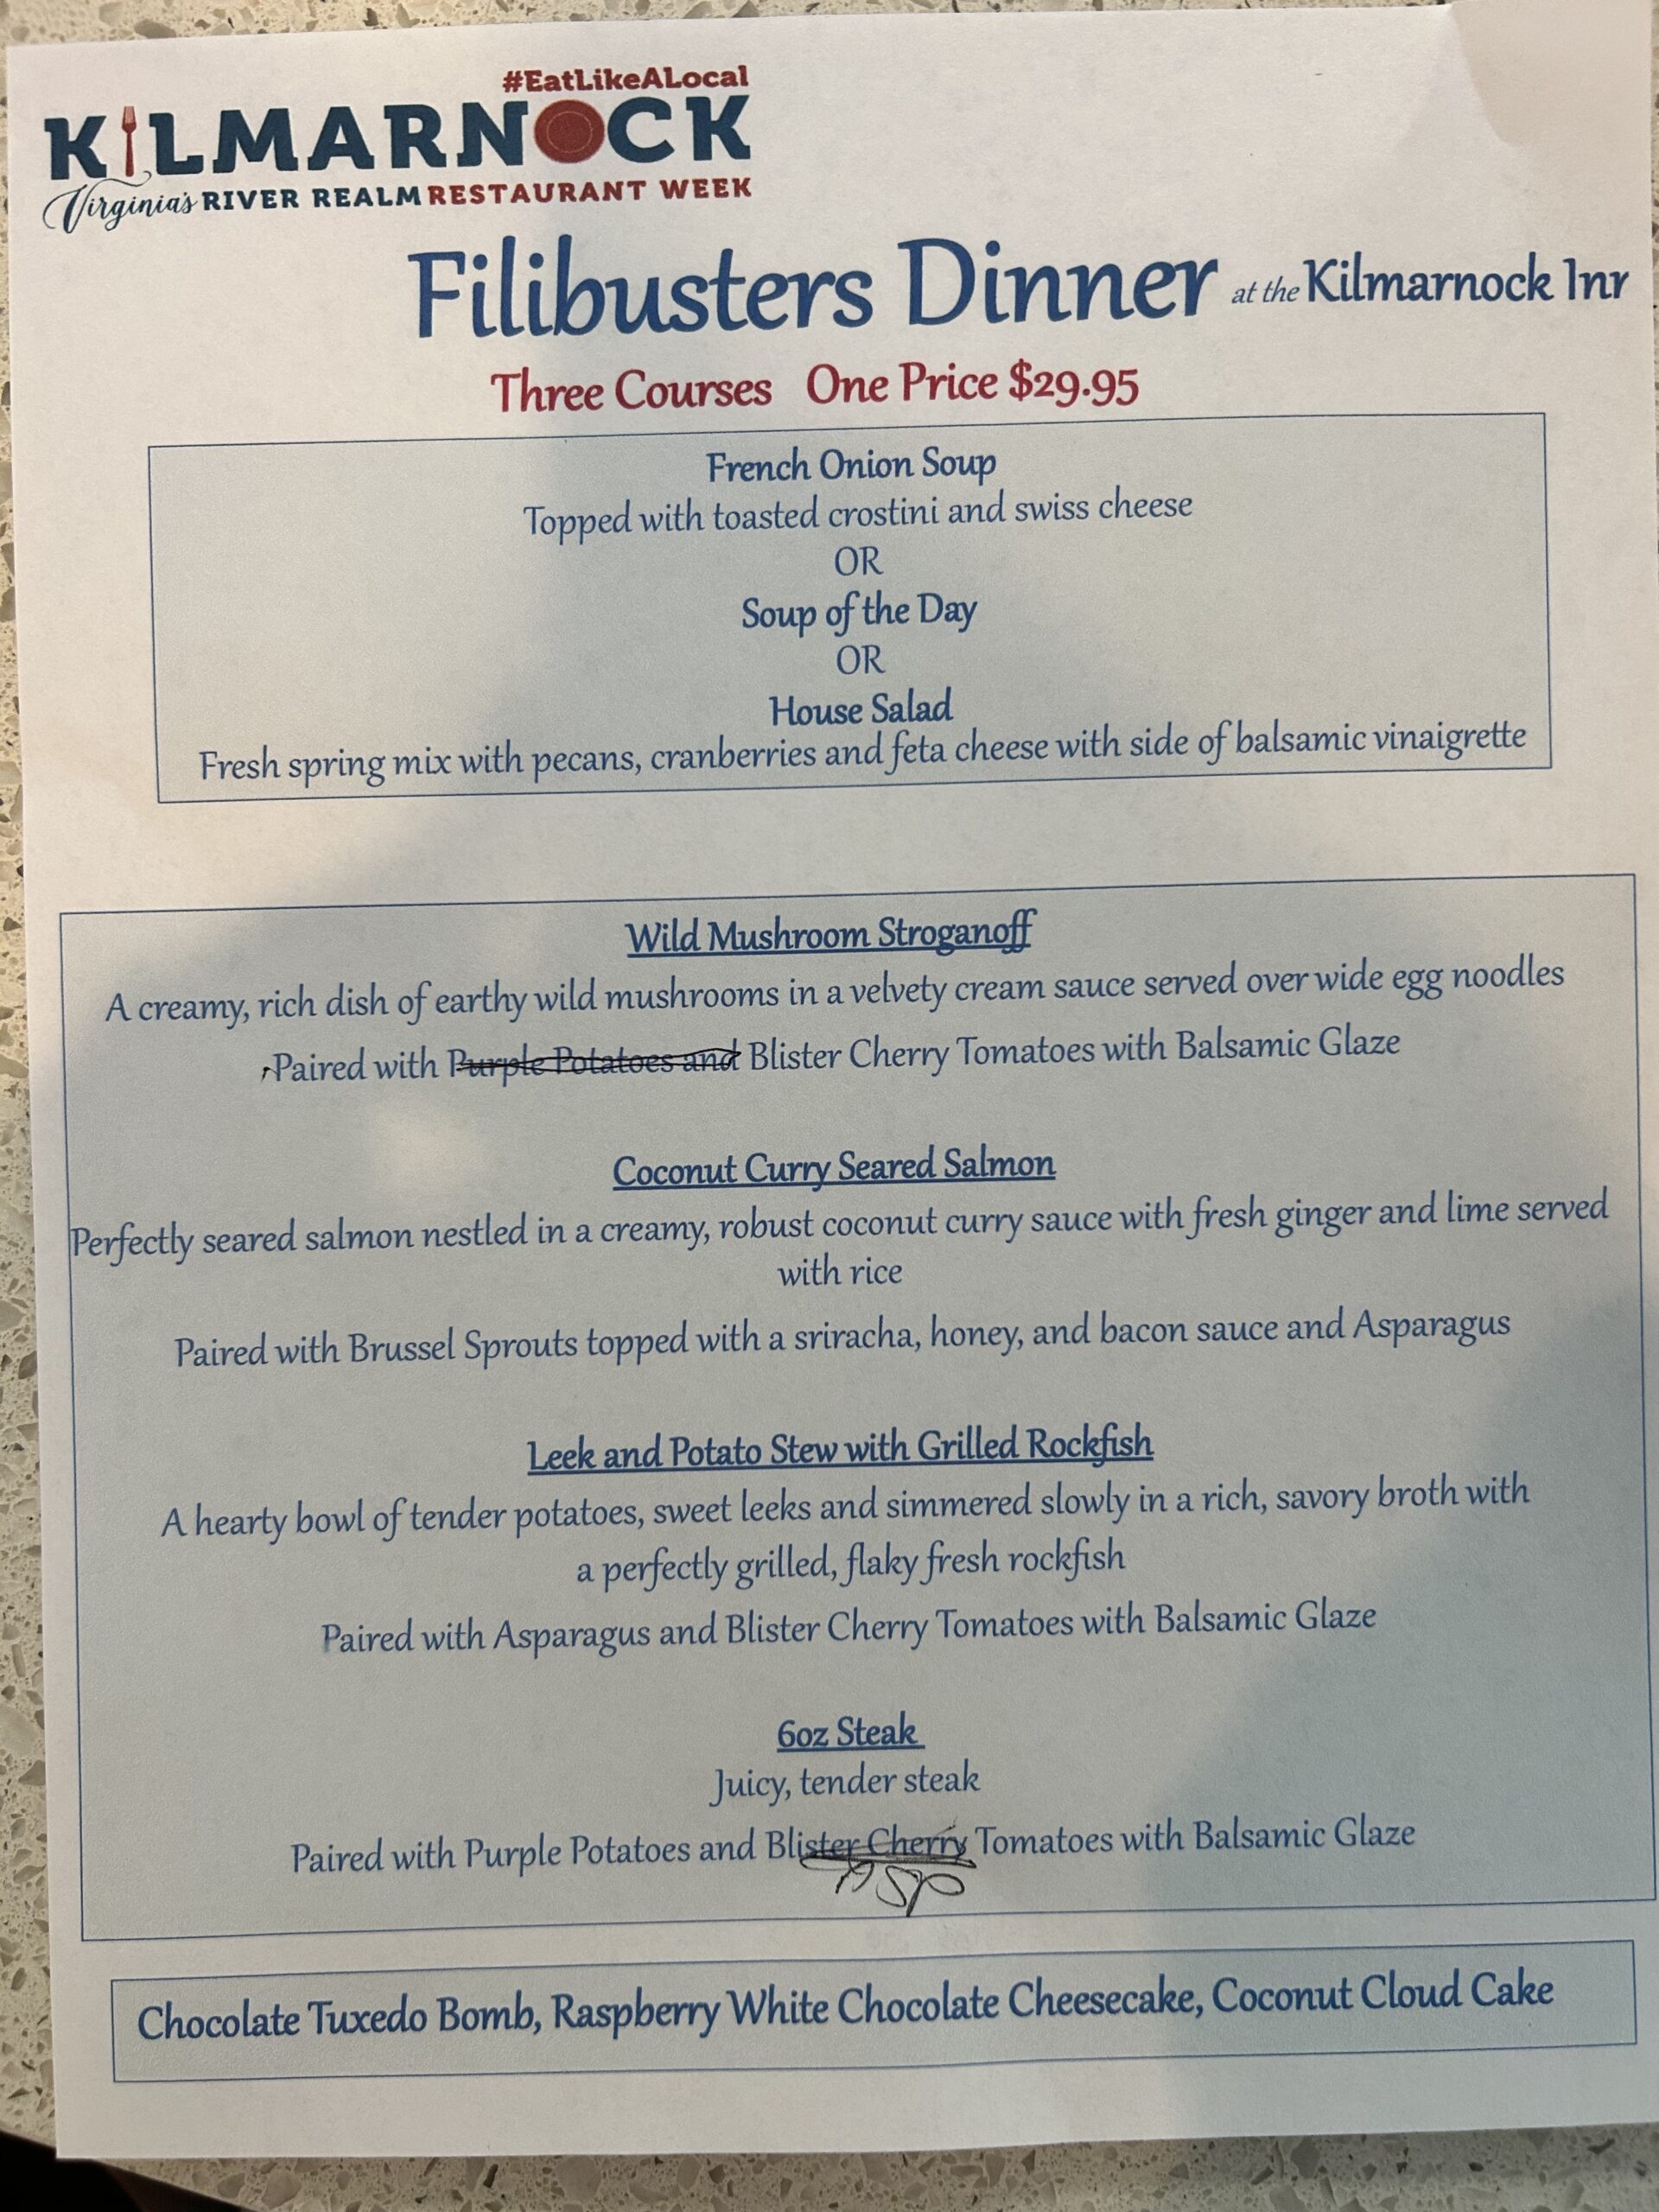 #EatLikeALocal
KILMARNOCK
Virginia's RIVER REALM RESTAURANT WEEK
Filibusters Dinner at the Kilmarnock Inr
Three Courses One Price $29.95
French Onion Soup
Topped with toasted crostini and swiss cheese
OR
Soup of the Day
OR
House Salad
Fresh spring mix with pecans, cranberries and feta cheese with side of balsamic vinaigrette
Wild Mushroom Stroganoff
A creamy, rich dish of earthy wild mushrooms in a velvety cream sauce served over wide egg noodles
Paired with Purple Potatoes and Blister Cherry Tomatoes with Balsamic Glaze
Coconut Curry Seared Salmon
Perfectly seared salmon nestled in a creamy, robust coconut curry sauce with fresh ginger and lime served
with rice
Paired with Brussel Sprouts topped with a sriracha, honey, and bacon sauce and Asparagus
Leek and Potato Stew with Grilled Rockfish
A hearty bowl of tender potatoes, sweet leeks and simmered slowly in a rich, savory broth with
a perfectly grilled, flaky fresh rockfish
Paired with Asparagus and Blister Cherry Tomatoes with Balsamic Glaze
6oz Steak
Juicy, tender steak
Paired with Purple Potatoes and Blister Cherry Tomatoes with Balsamic Glaze
Asp
Chocolate Tuxedo Bomb, Raspberry White Chocolate Cheesecake, Coconut Cloud Cake